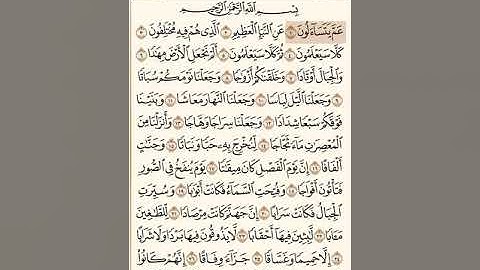 بِسْمِ اللَّهِ الرَّحْمَٰنِ الرَّحِيمِ
عَمَّ يَتَسَاءَلُونَ ١ عَنِ النَّبَإِ الْعَظِيمِ ٢ الَّذِي هُمْ فِيهِ مُخْتَلِفُونَ ٣
كَلَّا سَيَعْلَمُونَ ٤ ثُمَّ كَلَّا سَيَعْلَمُونَ ٥ أَلَمْ نَجْعَلِ الْأَرْضَ مِهَٰدًا ٦
وَالْجِبَالَ أَوْتَادًا ٧ وَخَلَقْنَٰكُمْ أَزْوَٰجًا ٨ وَجَعَلْنَا نَوْمَكُمْ سُبَاتًا
٩ وَجَعَلْنَا الَّيْلَ لِبَاسًا ١٠ وَجَعَلْنَا النَّهَارَ مَعَاشًا ١١ وَبَنَيْنَا
فَوْقَكُمْ سَبْعًا شِدَادًا ١٢ وَجَعَلْنَا سِرَاجًا وَهَّاجًا ١٣ وَأَنزَلْنَا مِنَ
الْمُعْصِرَٰتِ مَاءً ثَجَّاجًا ١٤ لِّنُخْرِجَ بِهِ حَبًّا وَنَبَاتًا ١٥ وَجَنَّٰتٍ
أَلْفَافًا ١٦ إِنَّ يَوْمَ الْفَصْلِ كَانَ مِيقَٰتًا ١٧ يَوْمَ يُنفَخُ فِي الصُّورِ
فَتَأْتُونَ أَفْوَاجًا ١٨ وَفُتِحَتِ السَّمَاءُ فَكَانَتْ أَبْوَٰبًا ١٩ وَسُيِّرَتِ
الْجِبَالُ فَكَانَتْ سَرَابًا ٢٠ إِنَّ جَهَنَّمَ كَانَتْ مِرْصَادًا ٢١ لِّلطَّٰغِينَ
مَـَٔابًا ٢٢ لَّٰبِثِينَ فِيهَا أَحْقَابًا ٢٣ لَّا يَذُوقُونَ فِيهَا بَرْدًا وَلَا شَرَابًا
٢٤ إِلَّا حَمِيمًا وَغَسَّاقًا ٢٥ جَزَاءً وِفَاقًا ٢٦ إِنَّهُمْ كَانُوا